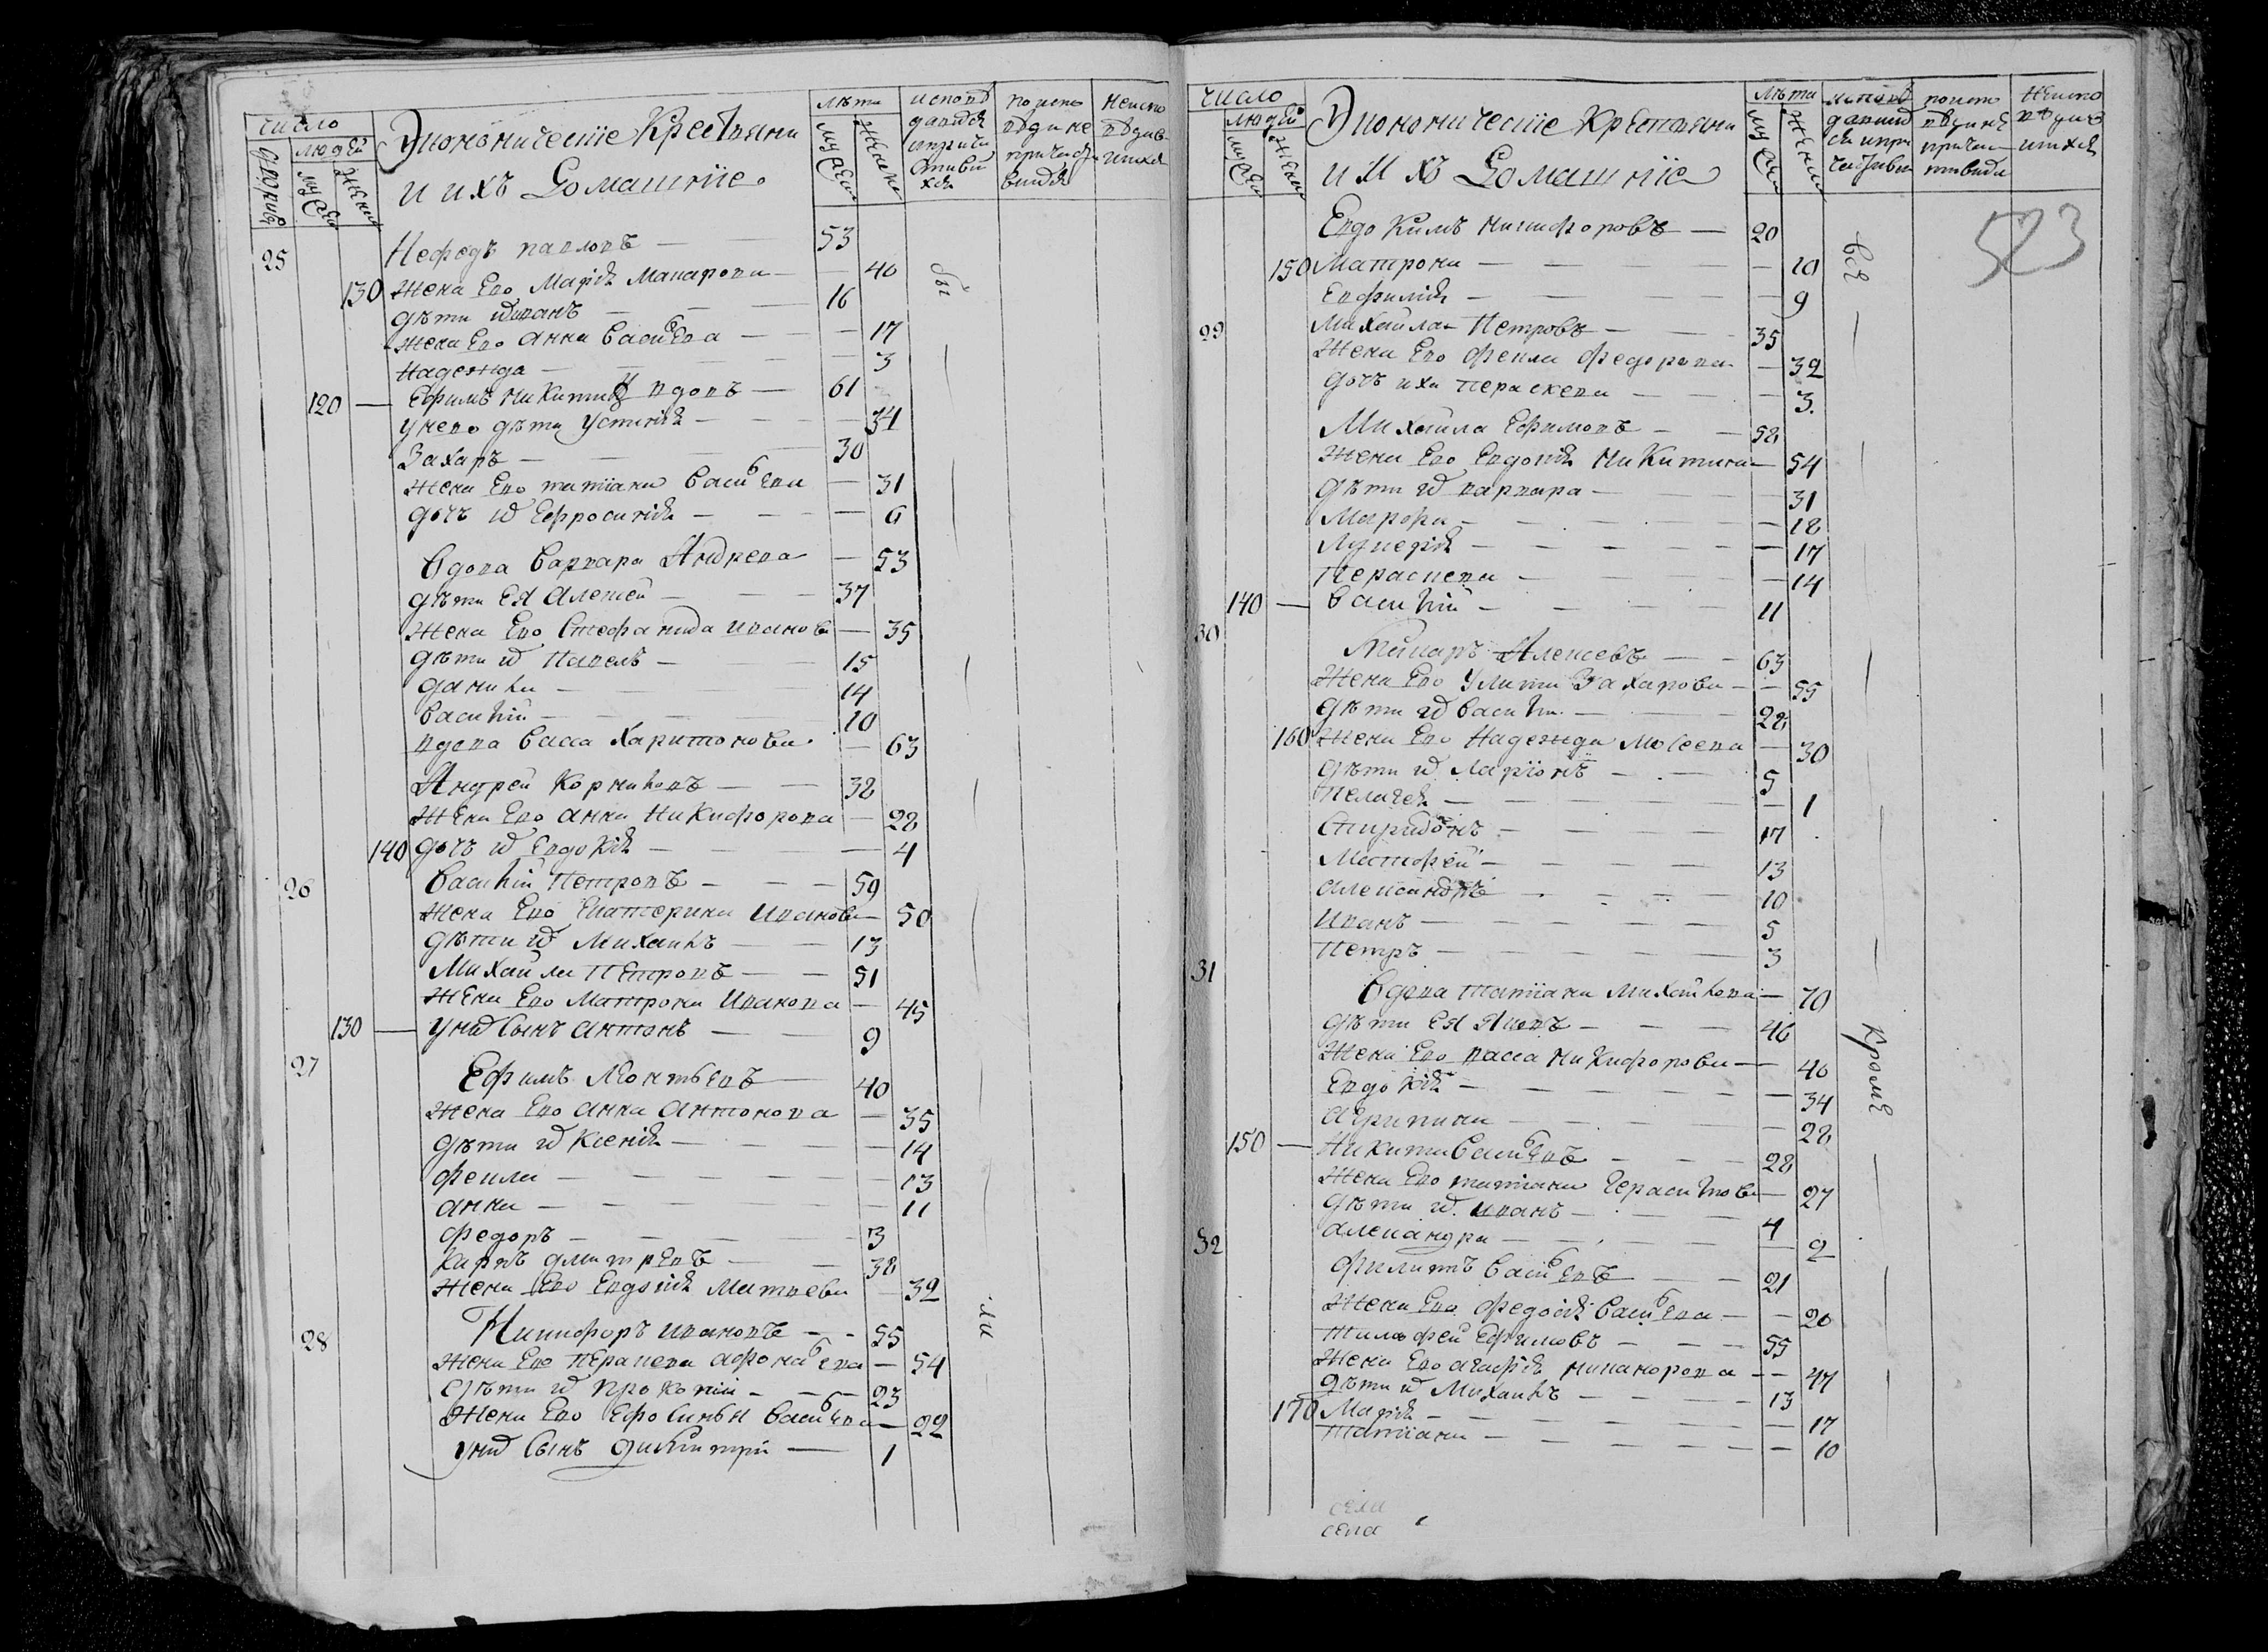 число
людей
дворовъ
мужеска
женска
Экономическіе Крестьяни
и ихъ Домашніе
лѣта
мужеска
женска
исповѣ
давшіся
и причас
тившіи
хся
по испо
вѣди не
причасти
вшіяся
неиспо
вѣдав
шихся
25 Нефедъ павловъ — 53
130 жена Ево Марія Макарова — 40
дѣти ихъ иванъ — 16
жена Ево анна Васильева — 17
надежда — 3
120 — Ефимъ Никитинъ вдовъ — 61
у нево дѣти устинія — 34
Захаръ — 30
жена Ево татіана Васильева — 31
дочь их Ефросинія — 6
Вдова Варвара Андреева — 53
дѣти Ея Алексей — 37
жена Ево Стефанида иванова — 35
дѣти их Павелъ — 15
данила — 14
Василій — 10
вдова Васса Харитонова — 63
Андрей Корниловъ — 32
жена Ево анна Никифорова — 28
140 дочь их Евдокія — 4
26 Василій Петровъ — 59
жена Ево Екатерина иванова — 50
дѣти их Михаилъ — 13
Михайла Петровъ — 51
жена Ево Матрона иванова — 45
130 — у них сынъ антонъ — 9
27 Ефимъ Леонтьевъ — 40
жена Ево анна антонова — 35
дѣти их Ксенія — 14
фекла — 13
анна — 11
федоръ — 3
Карпъ дмитревъ — 38
жена Ево Евдокія Матвеева — 32
28 Никифоръ ивановъ — 55
жена Ево Пераскева афонасьева — 54
дѣти их прокопій — 23
жена Ево Ефросинья Васильева — 22
у них сынъ димитрій — 1
бы
ли
число
людей
мужеска
женска
Экономическіе Крестьяни
и ихъ Домашніе
лѣта
мужеска
женска
исповѣ
давшіи
ся и при
частивши
по испо
вѣди не
причас
тившія
неиспо
вѣдав
шихся
523
Евдокимъ никифоровъ — 20
150 Матрона — 10
Евфимія — 9
29 Михайла Петровъ — 35
жена Ево фекла федорова — 32
дочь ихъ Пераскева — 3
Михайла Ефимовъ — 52
жена Ево Евдокія Никитина — 54
дѣти их варвара — 31
Марфа — 18
Лукерія — 17
Пераскева — 14
140 — Василій — 11
30
Макаръ Алексевъ — 63
жена Ево Улита Захарова — 55
дѣти их Василій — 28
160 жена Ево Надежда Мосеева — 30
дѣти их Ларіонъ — 5
Пелагея — 1
Спиридонъ — 17
Матфей — 13
александръ — 10
иванъ — 5
Петръ — 3
31
Вдова Татіана Михайлова — 70
дѣти Ея Яковъ — 46
жена Ево васса Никифорова — 40
Евдокія — 34
агрипина — 28
150 — Никита Васильевъ — 28
жена Ево татіана Герасимова — 27
дѣти их иванъ — 4
32 александра — 2
филипъ Васильевъ — 21
жена Ево федосія Васильева — 20
Тимофей Ефимовъ — 55
жена Ево агафія никанорова — 47
дѣти их Михаилъ — 13
170 Марія — 17
Татіана — 10
все
кроме
села
села